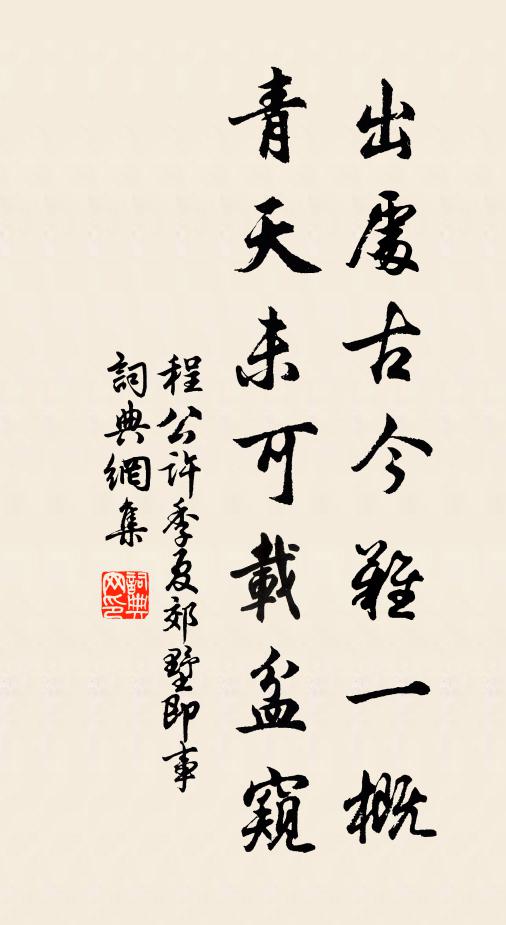 出處古今難一概
青天未可載盆窺
程公許季夏郊墅即事
詞典網集
詞典網印